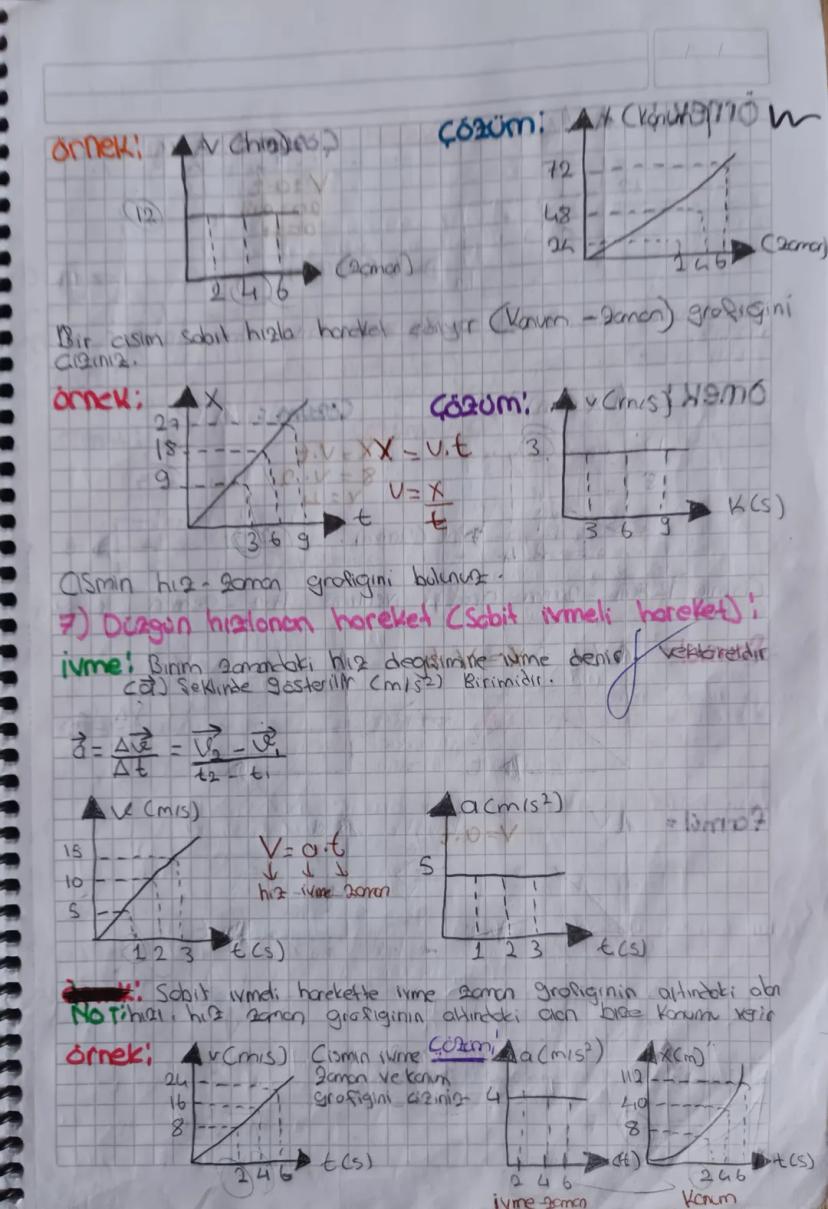 örnek: V (hız)
12
2 4 6
(zaman)
Çözüm: X (konum)
72
48
24
2 4 6
(zaman)
Bir cisim sabit hızla hareket ediyor (Konum - zaman) grafiğini
çiziniz.
örnek: X
27
18
9
3 6 9 t
X = v.t
v = x/t
Çözüm: v(m/s)
3
3 6 9
K(s)
Cismin hız - zaman grafiğini bulunuz.
7) Düzgün hızlanan hareket (Sabit ivmeli hareket):
ivme: Birim zamandaki hız değişimine ivme denir vektöreldir
(a⃗) Şeklinde gösterilir (m/s²) Birimidir.
a⃗ = Δv⃗/Δt = v⃗₂ - v⃗₁ / t₂ - t₁
V (m/s)
15
10
5
1 2 3 t(s)
V = a.t
↓ ↓ ↓
hız ivme zaman
a(m/s²)
5
1 2 3 t(s)
Sabit ivmeli harekette ivme zaman grafiğinin altındaki alan
NOT: hızı, hız zaman grafiğinin altındaki alan bize konumu verir
örnek: v(m/s)
24
16
8
2 4 6 t(s)
Cismin ivme
zaman ve konum
grafiğini çiziniz
Çözüm: a(m/s²)
4
2 4 6 (t)
ivme-zaman
X(m)
112
40
8
2 4 6 t(s)
Konum